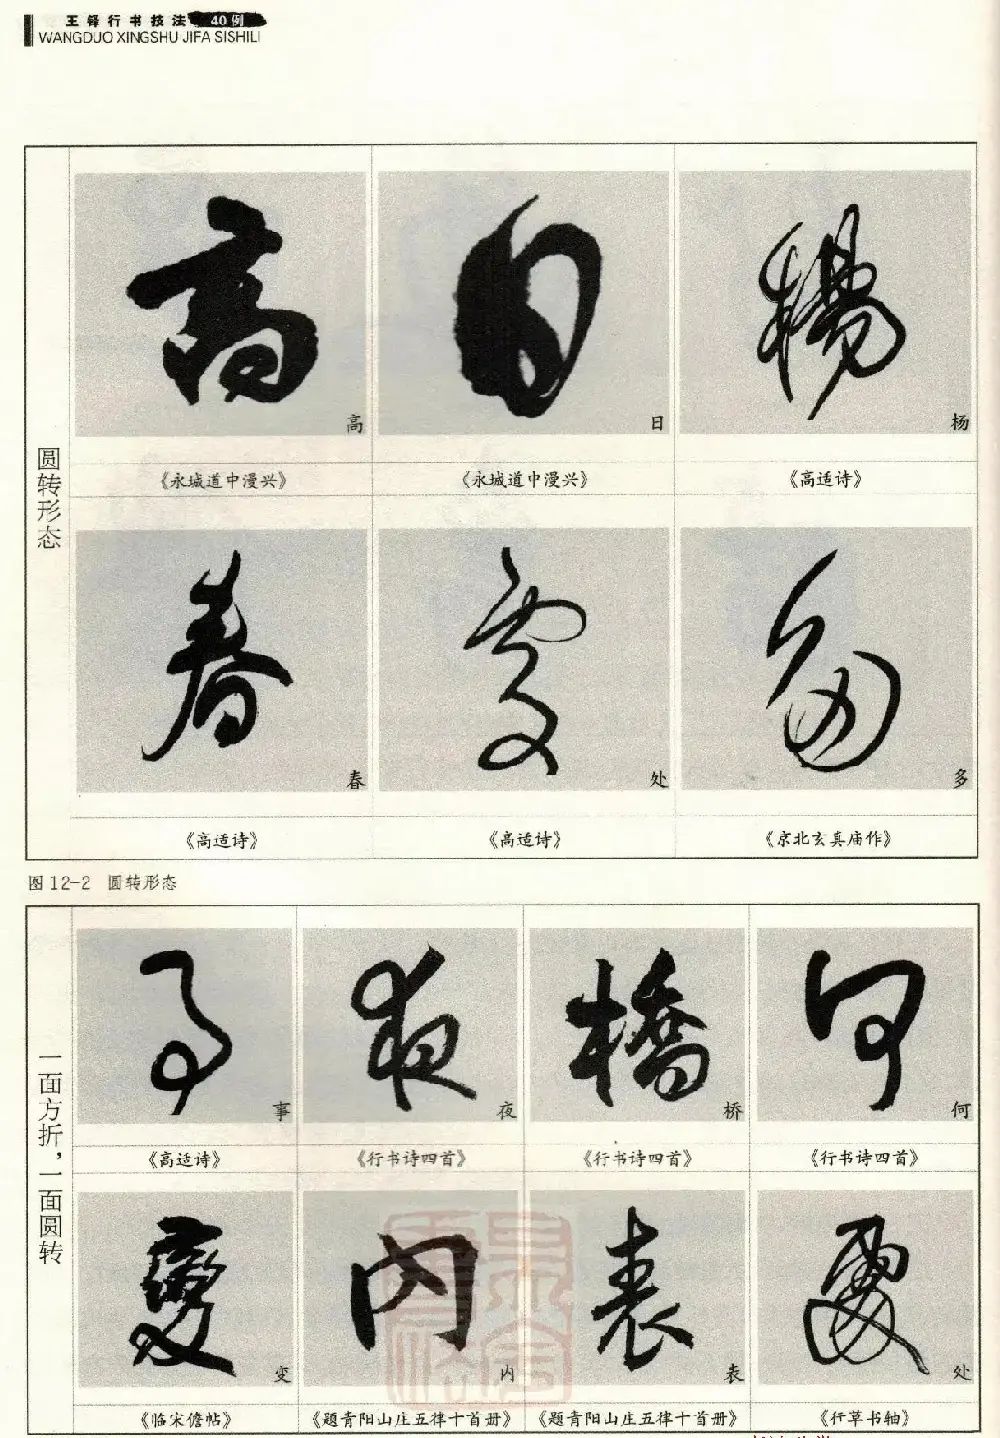 王铎行书技法40例
WANGDUO XINGSHU JIFA SISHILI
圆转形态
高 日 杨
《永城道中漫兴》 《永城道中漫兴》 《高适诗》
春 处 多
《高适诗》 《高适诗》 《京北玄真庙作》
图12-2 圆转形态
一面方折，一面圆转
事 夜 桥 何
《高适诗》 《行书诗四首》 《行书诗四首》 《行书诗四首》
变 内 表 处
《临宋儋帖》 《题青阳山庄五律十首册》 《题青阳山庄五律十首册》 《行草书轴》